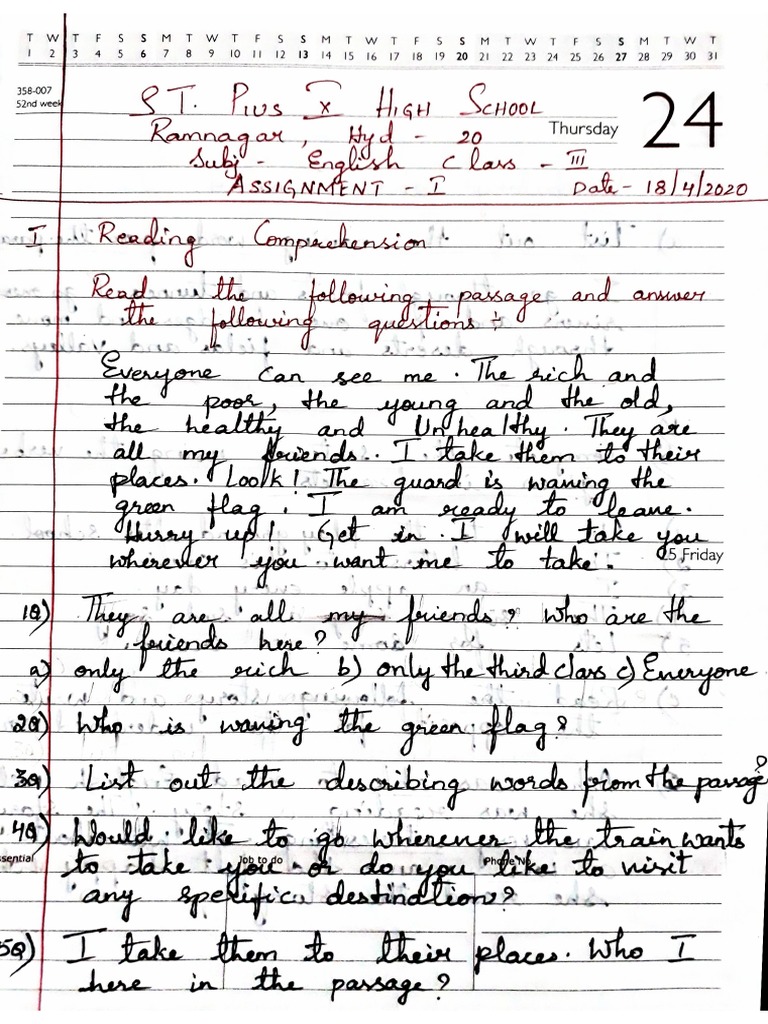 T W T F S S M T W T F S S M T W T F S S M T W T F S S M T W T
1 2 3 4 5 6 7 8 9 10 11 12 13 14 15 16 17 18 19 20 21 22 23 24 25 26 27 28 29 30 31
358-007
52nd week
Thursday 24
ST. PIUS X HIGH SCHOOL
Ramnagar, Hyd - 20
Subj - English Class - III
ASSIGNMENT - I Date - 18/4/2020
I Reading Comprehension
Read the following passage and answer
the following questions :-
Everyone can see me. The rich and
the poor, the young and the old,
the healthy and Unhealthy. They are
all my friends. I take them to their
places. Look! The guard is waving the
green flag. I am ready to leave.
Hurry up! Get in. I will take you
wherever you want me to take.
25 Friday
1Q) They are all my friends? Who are the
friends here?
a) only the rich b) only the third class c) Everyone
2Q) Who is waving the green flag?
3Q) List out the describing words from the passage?
4Q) Would like to go wherever the train wants
to take you or do you like to visit
any specific destination?
ssential
Job to do
Phone No.
5Q) I take them to their places. Who I
here in the passage?